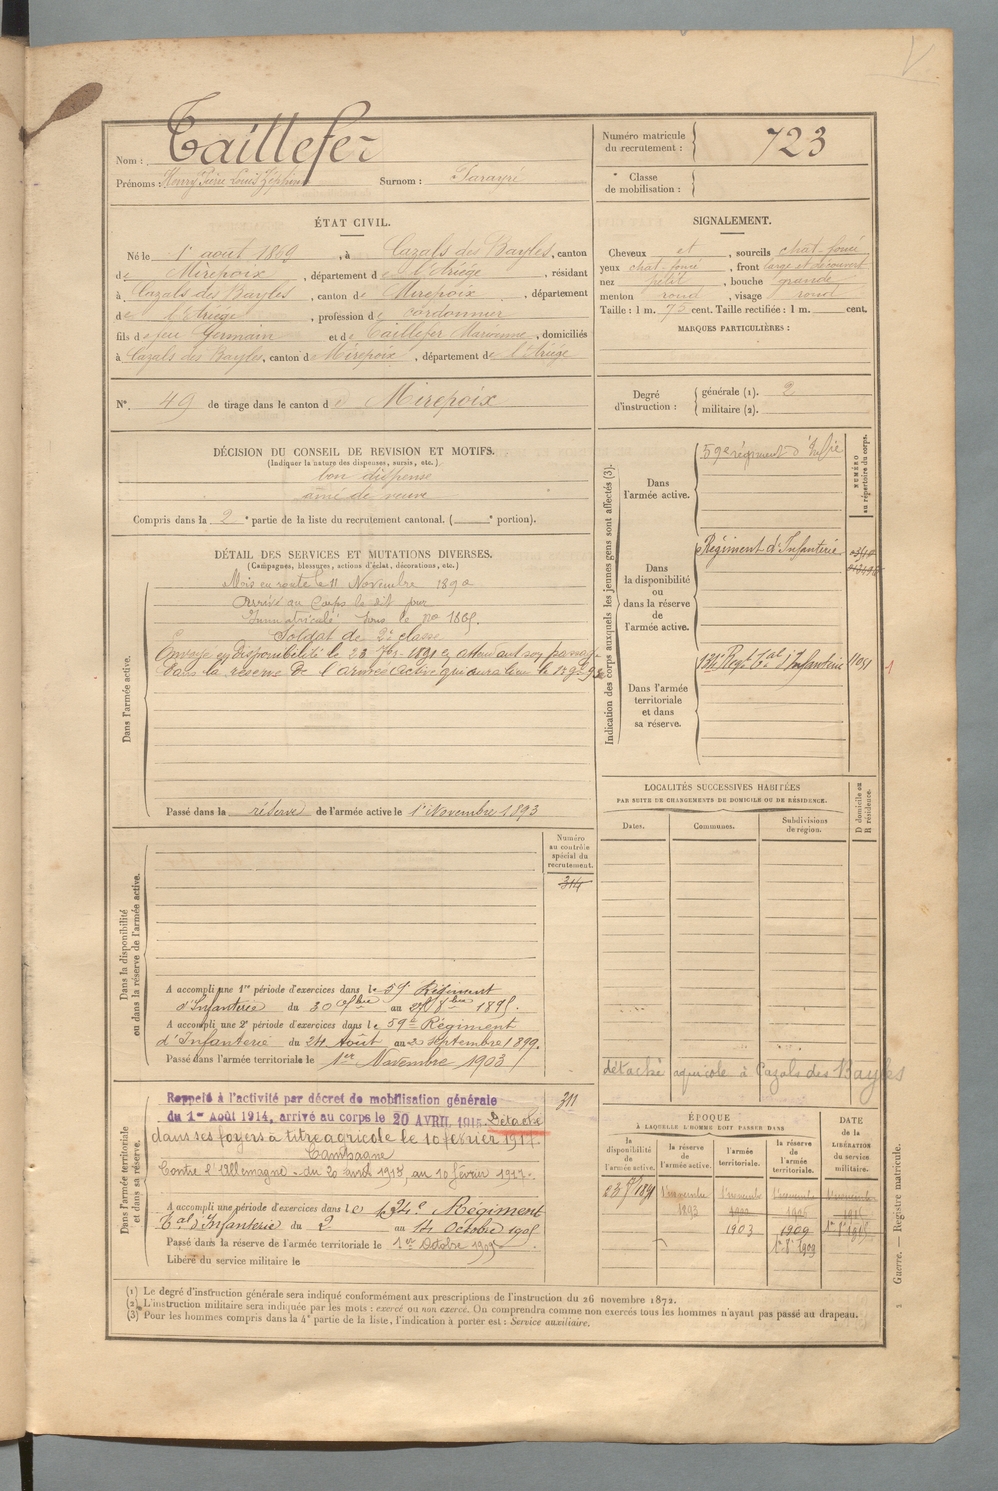 Nom : Taillefer
Prénoms : Henry Pierre Louis Zéphirin Surnom : Sarayré
Numéro matricule du recrutement : 723
Classe de mobilisation :
ÉTAT CIVIL.
Né le 1er août 1869, à Cazals des Bayles, canton
de Mirepoix, département de l'Ariège, résidant
à Cazals des Bayles, canton de Mirepoix, département
de l'Ariège, profession de cordonnier
fils de feu Germain et de Taillefer Marianne, domiciliés
à Cazals des Bayles, canton de Mirepoix, département de l'Ariège
N° 49 de tirage dans le canton de Mirepoix
SIGNALEMENT.
Cheveux et, sourcils chat-foncé
yeux chat-foncé, front large et découvert
nez petit, bouche grande
menton rond, visage rond
Taille : 1 m. 75 cent. Taille rectifiée : 1 m. cent.
MARQUES PARTICULIÈRES :
Degré d'instruction : générale (1). 2
militaire (2).
DÉCISION DU CONSEIL DE REVISION ET MOTIFS.
(Indiquer la nature des dispenses, sursis, etc.)
bon dispensé
aîné de veuve
Compris dans la 2e partie de la liste du recrutement cantonal. ( e portion).
DÉTAIL DES SERVICES ET MUTATIONS DIVERSES.
(Campagnes, blessures, actions d'éclat, décorations, etc.)
Dans l'armée active.
Mis en route le 11 Novembre 1890
Arrivé au Corps le dit jour
Immatriculé sous le no
Soldat de 2e classe
Envoyé en disponibilité le 23 7bre 1891 en attendant son passage
dans la réserve de l'armée active qui aura lieu le
Passé dans la réserve de l'armée active le 1er Novembre 1893
Indication des corps auxquels les jeunes gens sont affectés (3).
NUMÉRO au répertoire du corps.
Dans l'armée active.
59e régiment d'Inf.ie
Dans la disponibilité ou dans la réserve de l'armée active.
Régiment d'Infanterie
Dans l'armée territoriale et dans sa réserve.
134e Régt Tal d'Infanterie 1051
LOCALITÉS SUCCESSIVES HABITÉES
PAR SUITE DE CHANGEMENTS DE DOMICILE OU DE RÉSIDENCE.
Dates. Communes. Subdivisions de région. D domicile ou R résidence.
détaché agricole à Cazals des Bayles
Dans la disponibilité ou dans la réserve de l'armée active.
Numéro au contrôle spécial du recrutement.
314
A accompli une 1re période d'exercices dans le 59e Régiment
d'Infanterie du 30 7bre au 27 8bre 1895.
A accompli une 2e période d'exercices dans le 59e Régiment
d'Infanterie du 24 Août au 2 septembre 1899.
Passé dans l'armée territoriale le 1er Novembre 1903
Dans l'armée territoriale et dans sa réserve.
Rappelé à l'activité par décret de mobilisation générale
311
du 1er Août 1914, arrivé au corps le 20 AVRIL 1915. Détaché
dans ses foyers à titre agricole le 10 février 1917.
Campagne
Contre l'Allemagne - du 20 avril 1915 au 10 février 1917.
A accompli une période d'exercices dans le 134e Régiment
Tal d'Infanterie du 2 au 14 Octobre 1905
Passé dans la réserve de l'armée territoriale le 1er Octobre 1909
Libéré du service militaire le
ÉPOQUE
À LAQUELLE L'HOMME DOIT PASSER DANS
la disponibilité de l'armée active.
la réserve de l'armée active.
l'armée territoriale.
la réserve de l'armée territoriale.
DATE de la LIBÉRATION du service militaire.
23 7bre 1891 1er novembre 1893 1er novembre 1903 1er novembre 1909
1er 8bre 1909
1er 8bre 1915
(1) Le degré d'instruction générale sera indiqué conformément aux prescriptions de l'instruction du 26 novembre 1872.
(2) L'instruction militaire sera indiquée par les mots : exercé ou non exercé. On comprendra comme non exercés tous les hommes n'ayant pas passé au drapeau.
(3) Pour les hommes compris dans la 4e partie de la liste, l'indication à porter est : Service auxiliaire.
Guerre. — Registre matricule.